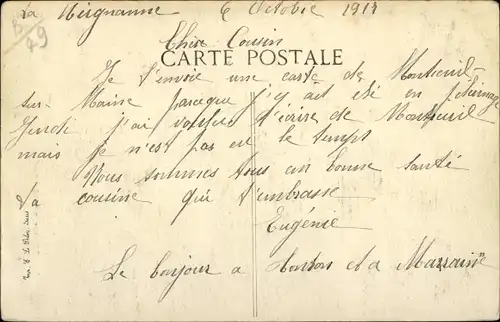 La Meignanne 6 Octobre 1911
B/49
Cher Cousin
CARTE POSTALE
Je t'envoie une carte de Montreuil-
sur-Maine parceque j'y ait été en
Jeudi j'ai voulue t'écrire de Montreuil
mais je n'est pas eu le temps
Nous sommes tous en bonne santé
Ta cousine qui t'embrasse
Eugénie
Le bonjour a tonton et a Marraine